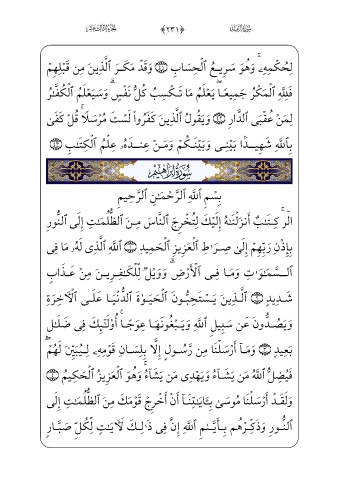 سورة الرعد ﴿٢٣١﴾ الجزء الثالث عشر
لِحُكْمِهِۦۚ وَهُوَ سَرِيعُ ٱلْحِسَابِ ۝٤١ وَقَدْ مَكَرَ ٱلَّذِينَ مِن قَبْلِهِمْ
فَلِلَّهِ ٱلْمَكْرُ جَمِيعًاۖ يَعْلَمُ مَا تَكْسِبُ كُلُّ نَفْسٍۗ وَسَيَعْلَمُ ٱلْكُفَّٰرُ
لِمَنْ عُقْبَى ٱلدَّارِ ۝٤٢ وَيَقُولُ ٱلَّذِينَ كَفَرُواْ لَسْتَ مُرْسَلًاۚ قُلْ كَفَىٰ
بِٱللَّهِ شَهِيدًۢا بَيْنِى وَبَيْنَكُمْ وَمَنْ عِندَهُۥ عِلْمُ ٱلْكِتَٰبِ ۝٤٣
سُورَةُ إِبْرَاهِيم
بِسْمِ ٱللَّهِ ٱلرَّحْمَٰنِ ٱلرَّحِيمِ
الٓرۚ كِتَٰبٌ أَنزَلْنَٰهُ إِلَيْكَ لِتُخْرِجَ ٱلنَّاسَ مِنَ ٱلظُّلُمَٰتِ إِلَى ٱلنُّورِ
بِإِذْنِ رَبِّهِمْ إِلَىٰ صِرَٰطِ ٱلْعَزِيزِ ٱلْحَمِيدِ ۝١ ٱللَّهِ ٱلَّذِى لَهُۥ مَا فِى
ٱلسَّمَٰوَٰتِ وَمَا فِى ٱلْأَرْضِۗ وَوَيْلٌ لِّلْكَٰفِرِينَ مِنْ عَذَابٍ
شَدِيدٍ ۝٢ ٱلَّذِينَ يَسْتَحِبُّونَ ٱلْحَيَوٰةَ ٱلدُّنْيَا عَلَى ٱلْآخِرَةِ
وَيَصُدُّونَ عَن سَبِيلِ ٱللَّهِ وَيَبْغُونَهَا عِوَجًاۚ أُوْلَٰٓئِكَ فِى ضَلَٰلٍۭ
بَعِيدٍ ۝٣ وَمَآ أَرْسَلْنَا مِن رَّسُولٍ إِلَّا بِلِسَانِ قَوْمِهِۦ لِيُبَيِّنَ لَهُمْۖ
فَيُضِلُّ ٱللَّهُ مَن يَشَآءُ وَيَهْدِى مَن يَشَآءُۚ وَهُوَ ٱلْعَزِيزُ ٱلْحَكِيمُ ۝٤
وَلَقَدْ أَرْسَلْنَا مُوسَىٰ بِـَٔايَٰتِنَآ أَنْ أَخْرِجْ قَوْمَكَ مِنَ ٱلظُّلُمَٰتِ إِلَى
ٱلنُّورِ وَذَكِّرْهُم بِأَيَّىٰمِ ٱللَّهِۚ إِنَّ فِى ذَٰلِكَ لَـَٔايَٰتٍ لِّكُلِّ صَبَّارٍ